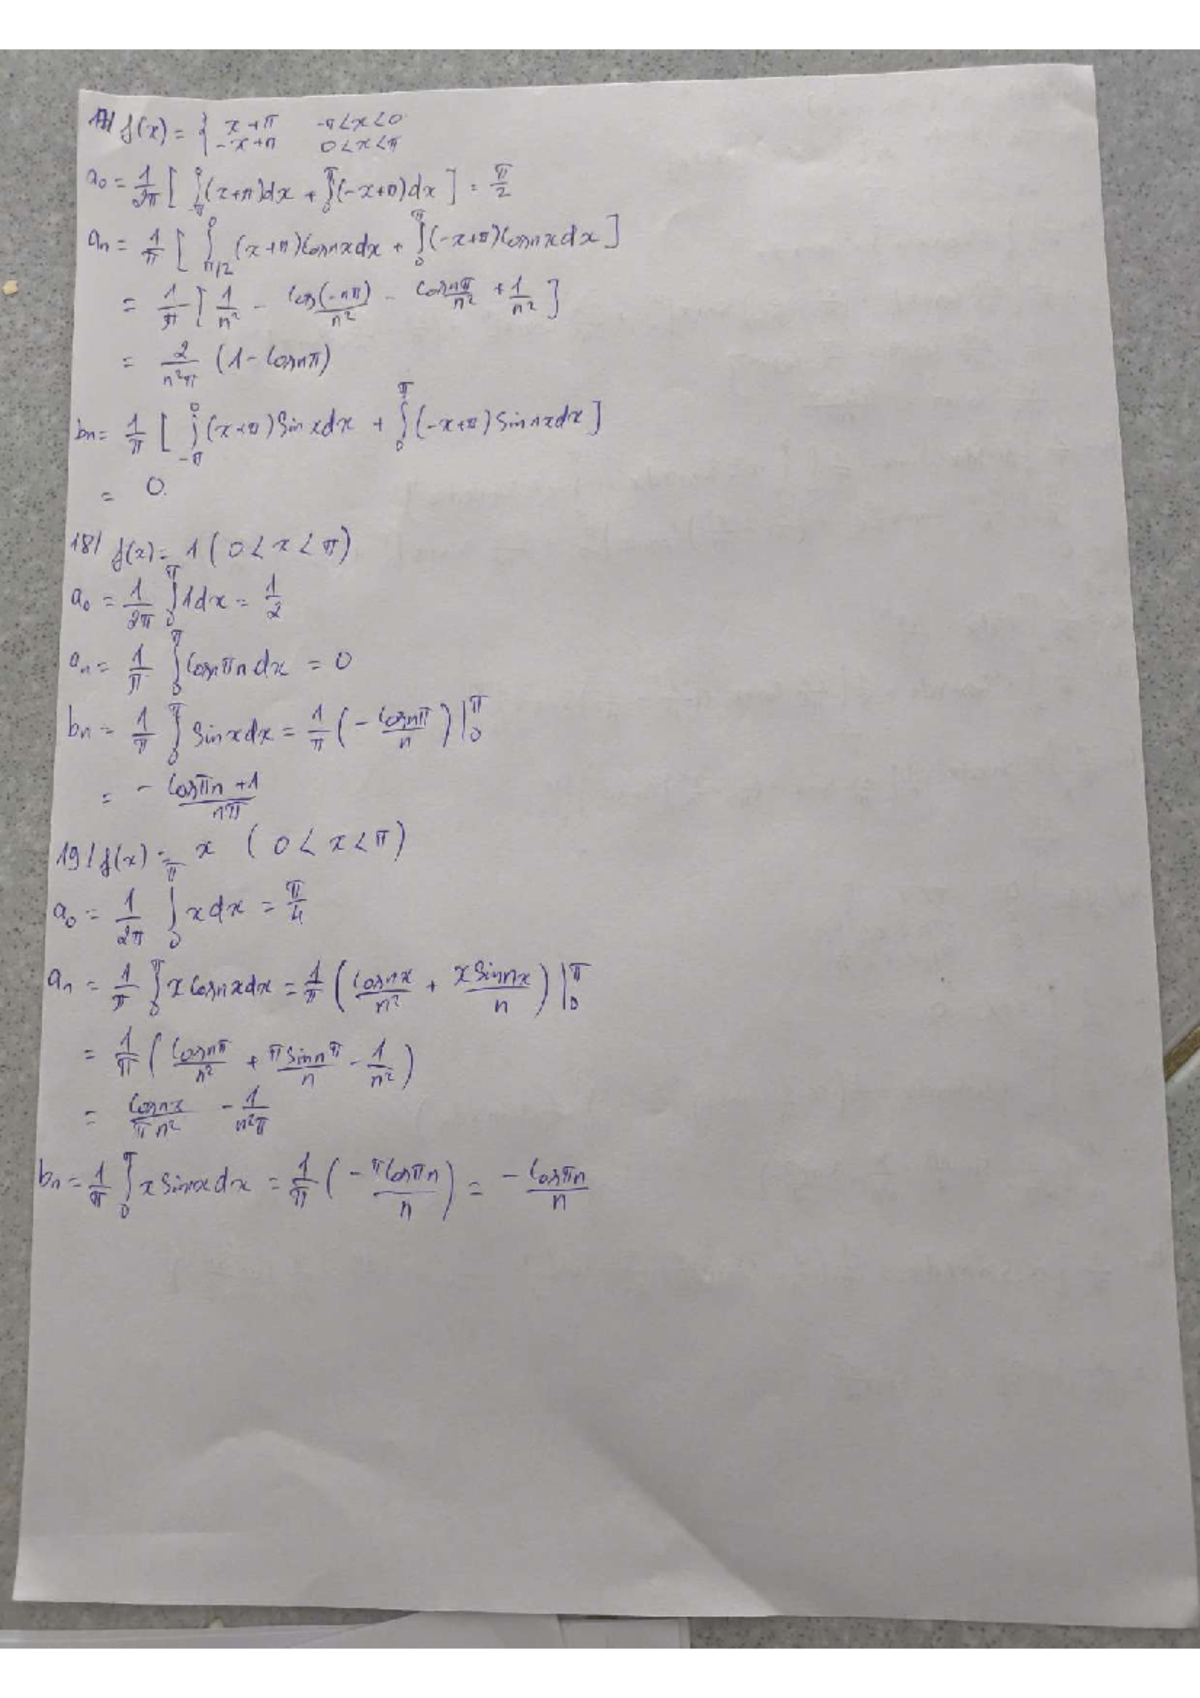 17/ f(x) = { x+π   -π<x<0
-x+π   0<x<π
a₀ = 1/2π [ ∫_π^0 (x+π)dx + ∫_0^π (-x+π)dx ] = π/2
aₙ = 1/π [ ∫_{π/2}^0 (x+π)cosnxdx + ∫_0^π (-x+π)cosnxdx ]
= 1/π [ 1/n² - cos(-nπ)/n² - cosnπ/n² + 1/n² ]
= 2/n²π (1 - cosnπ)
bₙ = 1/π [ ∫_{-π}^0 (x+π)sin xdx + ∫_0^π (-x+π)sin nxdx ]
= 0.
18/ f(x) = 1 ( 0 < x < π )
a₀ = 1/2π ∫_0^π 1dx = 1/2
aₙ = 1/π ∫_0^π cosπn dx = 0
bₙ = 1/π ∫_0^π sinxdx = 1/π ( - cosnπ/n ) |_0^π
= (- cosπn + 1)/nπ
19/ f(x) = x ( 0 < x < π )
a₀ = 1/2π ∫_0^π xdx = π/4
aₙ = 1/π ∫_0^π x cosnxdx = 1/π ( cosnx/n² + x sinnx/n ) |_0^π
= 1/π ( cosnπ/n² + π sinnπ/n - 1/n² )
= cosnx/πn² - 1/n²π
bₙ = 1/π ∫_0^π x sinnxdx = 1/π ( - πcosπn/n ) = - cosπn/n